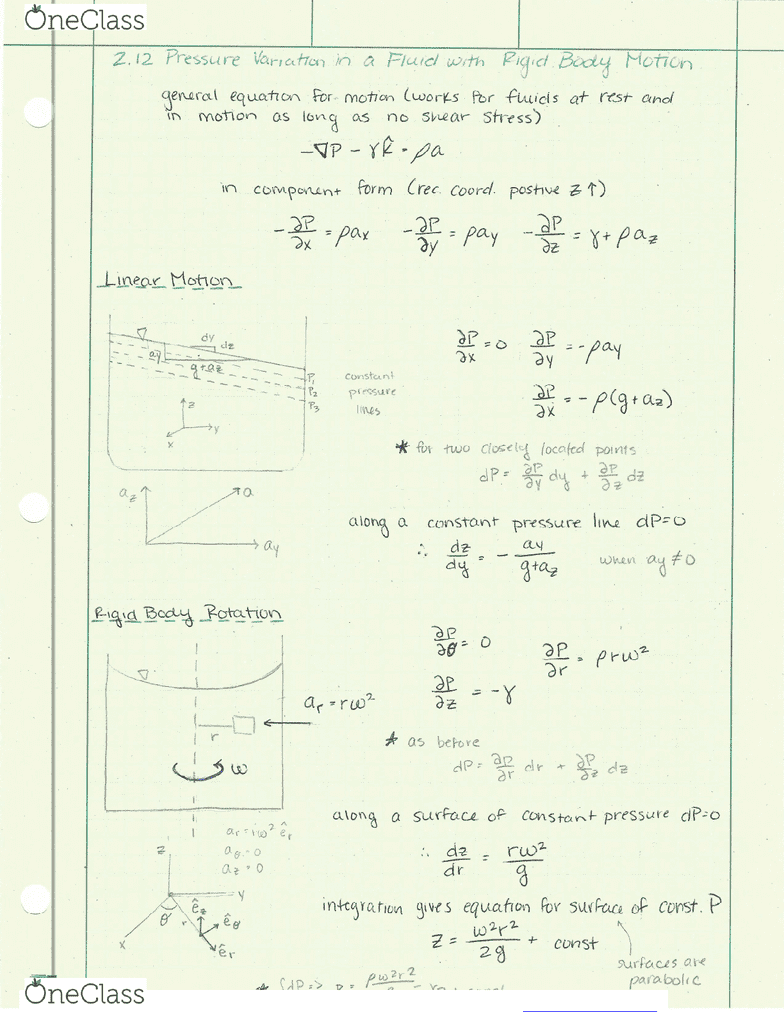 OneClass
2.12 Pressure Variation in a Fluid with Rigid Body Motion
general equation for motion (works for fluids at rest and
in motion as long as no shear stress)
-∇P - γk̂ = ρa
in component form (rec. coord. postive z↑)
-∂P/∂x = ρax   -∂P/∂y = ρay   -∂P/∂z = γ + ρaz
Linear Motion
dy
dz
ay
g+az
P1
P2
P3
constant
pressure
lines
z
y
x
∂P/∂x = 0   ∂P/∂y = -ρay
∂P/∂x = -ρ(g+az)
* for two closely located points
dP = ∂P/∂y dy + ∂P/∂z dz
az
a
ay
along a constant pressure line dP=0
∴ dz/dy = - ay/(g+az)   when ay ≠ 0
Rigid Body Rotation
∂P/∂θ = 0   ∂P/∂r = ρrω²
∂P/∂z = -γ
ar = rω²
r
ω
* as before
dP = ∂P/∂r dr + ∂P/∂z dz
along a surface of constant pressure dP=0
∴ dz/dr = rω²/g
ar = rω² êr
aθ = 0
az = 0
z
y
x
θ
r
êz
êθ
êr
integration gives equation for surface of const. P
z = ω²r²/2g + const
surfaces are
parabolic
OneClass